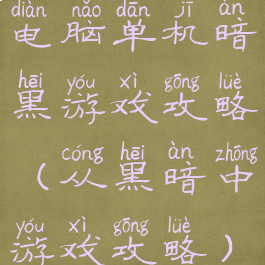 diàn nǎo dān jī àn
电脑单机暗
hēi yóu xì gōng lüè
黑游戏攻略
cóng hēi àn zhōng
（从黑暗中
yóu xì gōng lüè
游戏攻略）